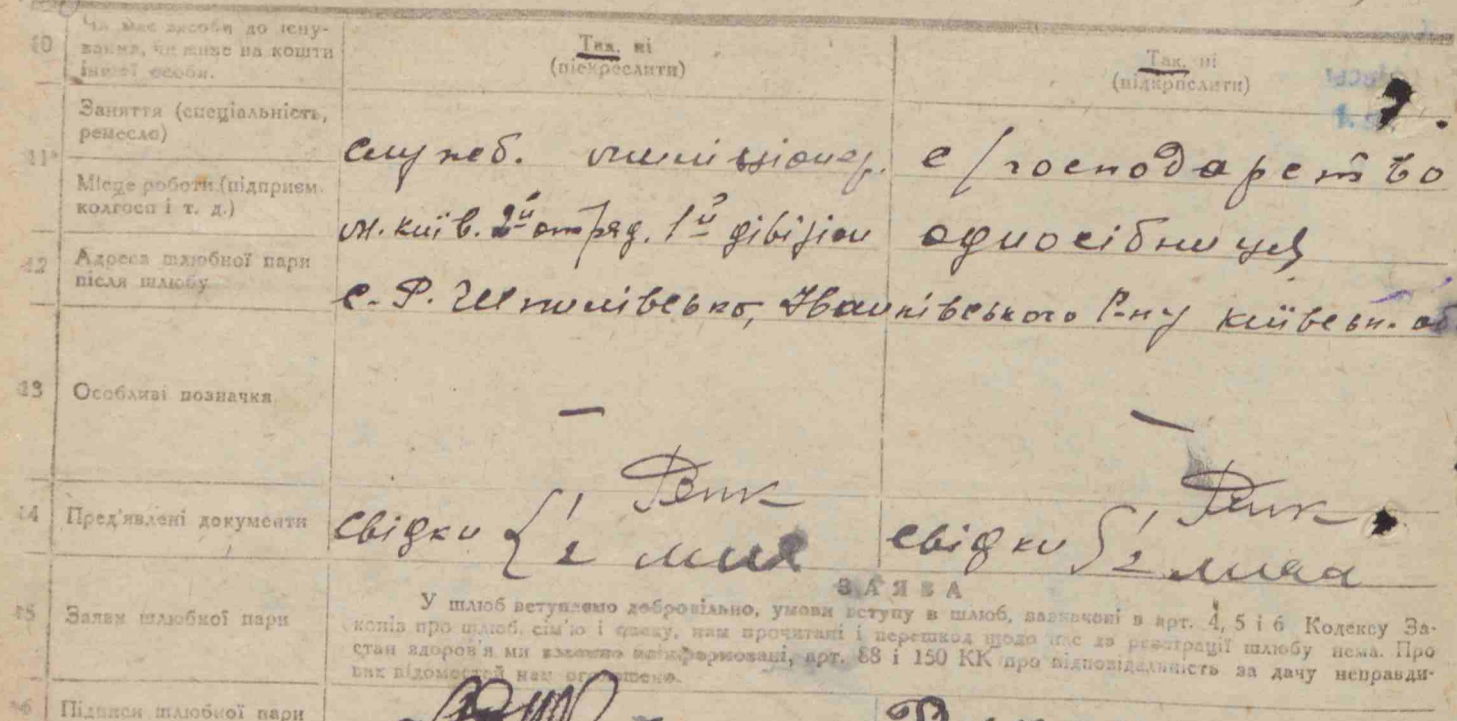 10 Чи має засоби до існу-
вання, чи живе на кошти
іншої особи.
Так. ні
(підкреслити)
Так. ні
(підкрислити)
Заняття (спеціальність,
ремесло)
11
служб. міліціонер.
с/господарство
Місце роботи (підприєм.
колгосп і т. д.)
м. Київ. 2й отряд. 1й дівізіон
односібниця
12 Адреса шлюбної пари
після шлюбу
с. Р. Шпилівсько, Іванківського Р-ну київськ. об
13 Особливі позначки
—
—
14 Пред'явлені документи
свідки { 1
2
свідки { 1
2
ЗАЯВА
15 Заяви шлюбної пари
У шлюб вступаємо добровільно, умови вступу в шлюб, зазначені в арт. 4, 5 і 6 Кодексу За-
конів про шлюб, сім'ю і опеку, нам прочитані і перешкод щодо нас до реєстрації шлюбу нема. Про
стан здоров'я ми взаємно поінформовані, арт. 88 і 150 КК про відповідальність за дачу неправди-
вих відомостей нам оголошено.
16 Підписи шлюбної пари